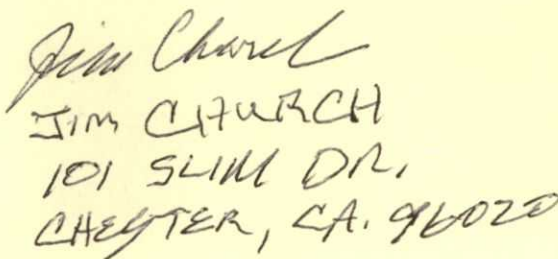 Jim Church
JIM CHURCH
101 SLIM DR.
CHESTER, CA. 96020